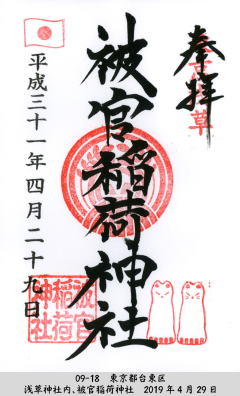 奉拝
浅草
被官稲荷神社
平成三十一年四月二十九日
被官
稲荷
神社
09-18 東京都台東区
浅草神社内、被官稲荷神社 2019年4月29日